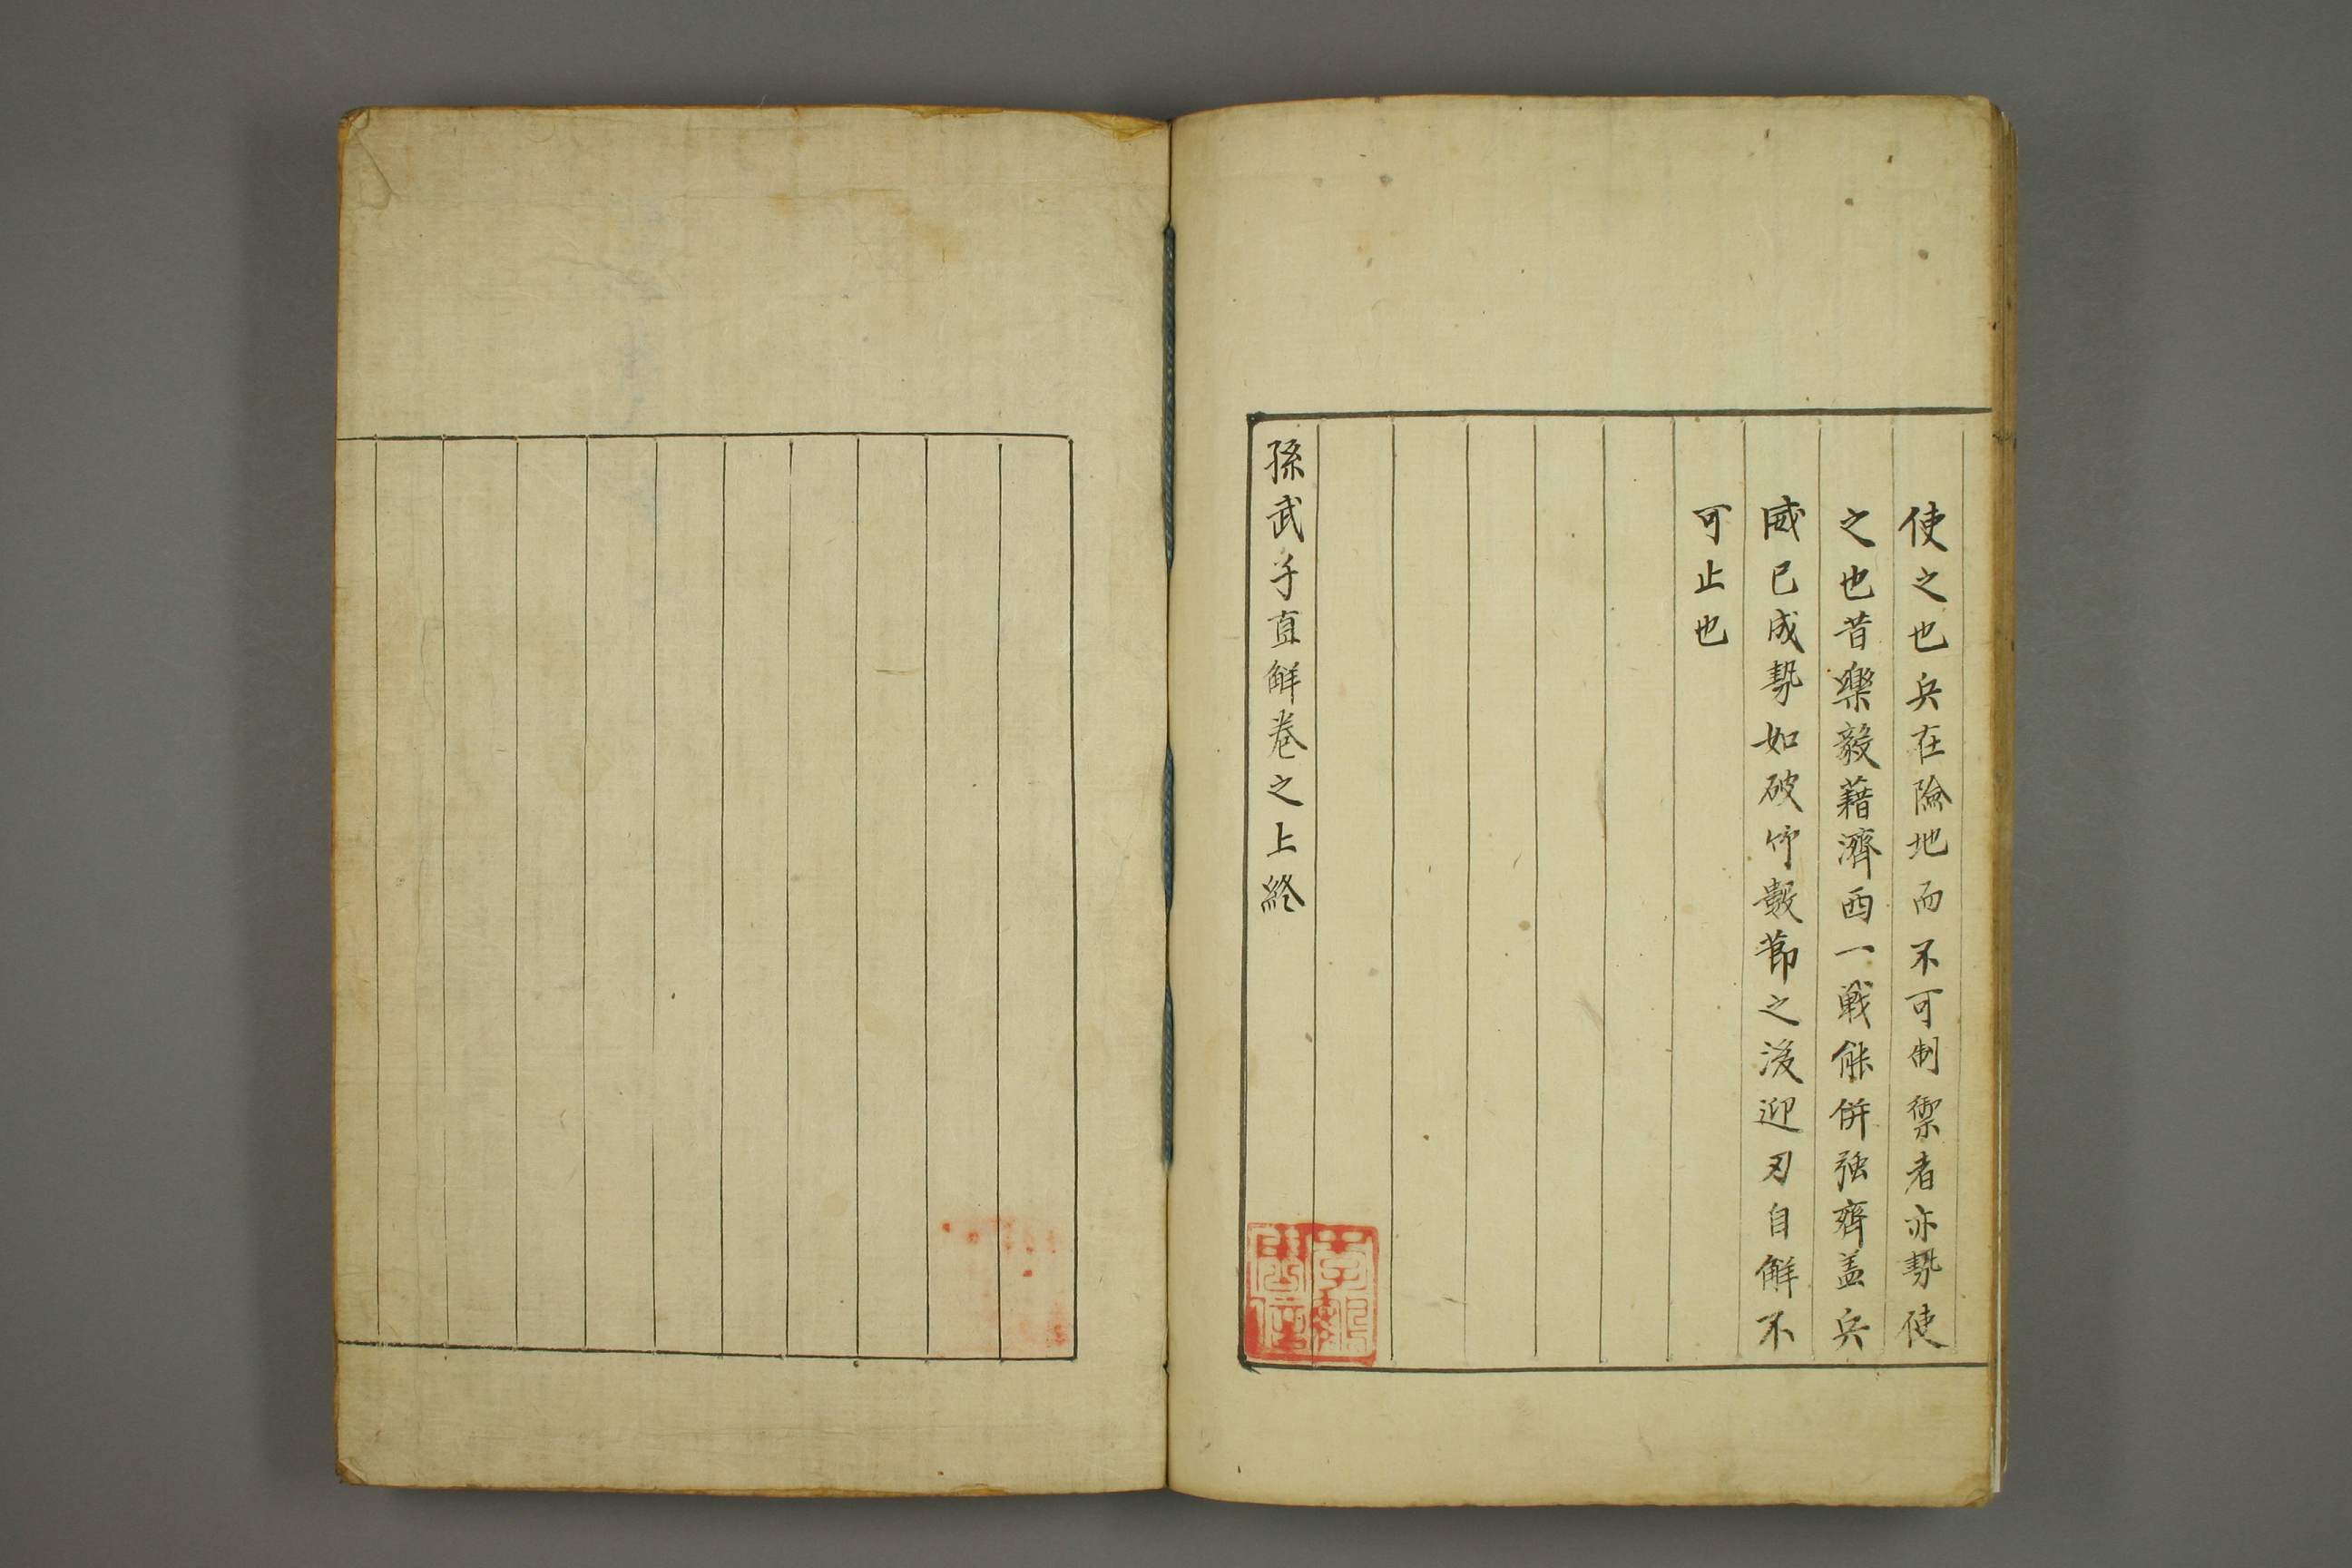 使之也兵在險地而不可制禦者亦㔟使
之也昔樂毅藉濟西一戦能併强齊盖兵
威已成㔟如破竹數莭之後迎刃自觧不
可止也
孫武子直觧卷之上終